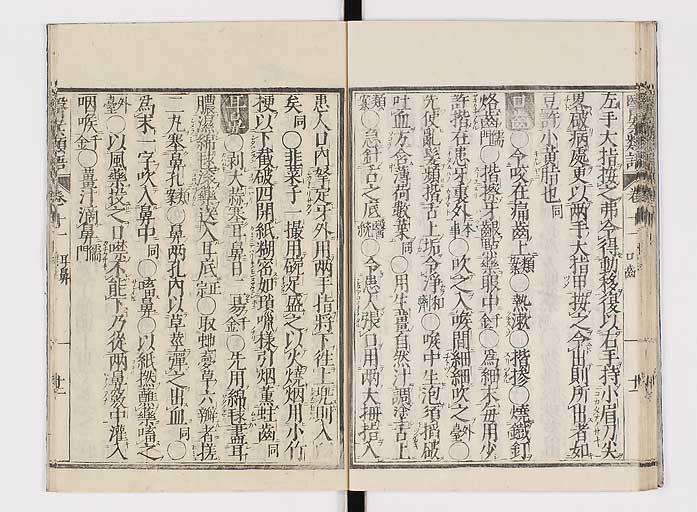 左手大指按之弗令得動移復以右手持小眉刀尖
畧破病處更以兩手大指甲按之令血則所出者如
豆許小黄脂也同
口齒 ○令咬在痛齒上 ○熱漱 ○揩掺 ○燒鐵釘
烙齒 ○揩擦牙齦點藥眼中 ○爲細末每用少
許揩在患牙裏外 ○吹之入喉間細細吹之
先使亂髮纒揩舌上垢令淨 ○喉中生泡須搯破
吐血方含薄荷數葉同 ○用生薑自然汁調塗舌上
○急針舌之底 ○令患人張口用兩大拇指入
患人口內拏定牙外用兩手指將下往上兜則入
矣同 ○韭菜子一撮用碗足盛之以火燒烟用小竹
梗以下截破四開紙糊密如瑣㖠樣引烟薰蛀齒同
耳鼻 ○剥大蒜塞耳鼻日一易 ○先用綿毬盪耳
膿濕綿毬滚藥送入耳底 ○取 六瓣者搓
二丸塞鼻孔 ○鼻兩孔內以草莖彈之出血 ○
爲末一字吹入鼻中同 ○嗜鼻 ○以紙撚蘸藥嗜之
○以風藥投之口噤不能下乃從兩鼻竅中灌入
咽喉 ○薑汁滴鼻
耳鼻
口齒